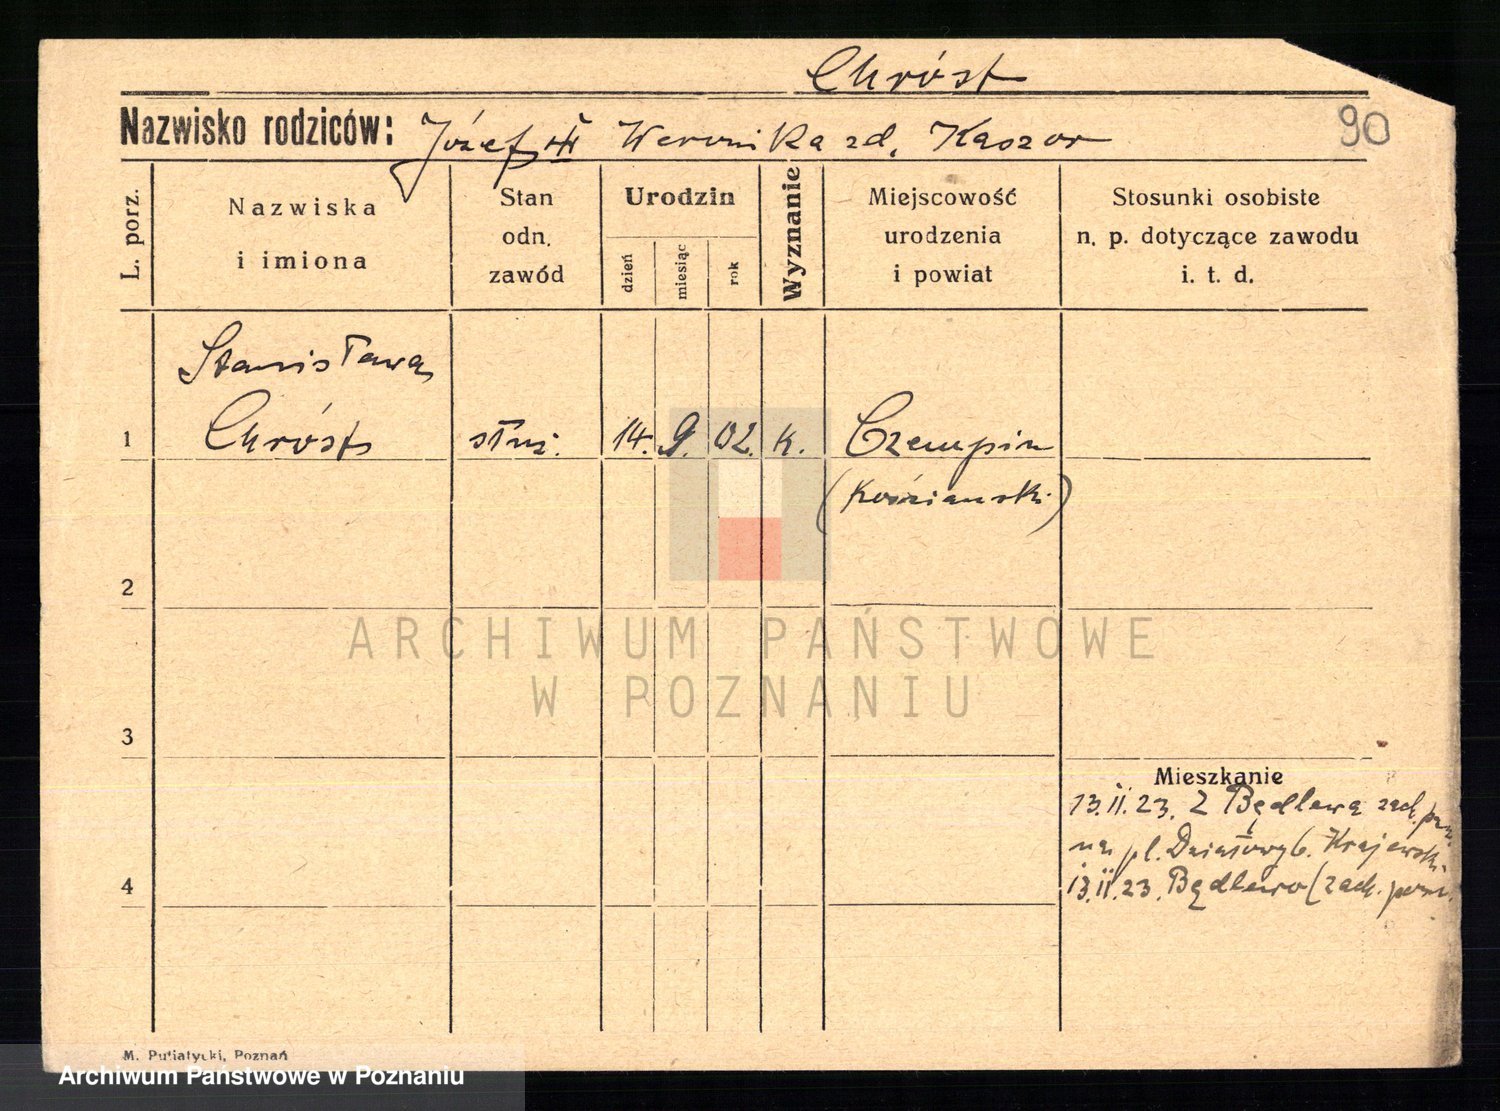 Chróst
Nazwisko rodziców: Józef Weronika zd. Kaszor
90
L. porz.
Nazwiska
i imiona
Stan
odn.
zawód
Urodzin
dzień
miesiąc
rok
Wyznanie
Miejscowość
urodzenia
i powiat
Stosunki osobiste
n. p. dotyczące zawodu
i. t. d.
Stanisława
1 Chróst służ. 14. 9. 02. k. Czempin
(Kościański)
2
ARCHIWUM PAŃSTWOWE
W POZNANIU
3
Mieszkanie
13.II.23. Z Będlewa zach.
na pl. Działowy 6. Krajewski
4 13.II.23. Będlewo (zach.
M. Putiatycki, Poznań
Archiwum Państwowe w Poznaniu